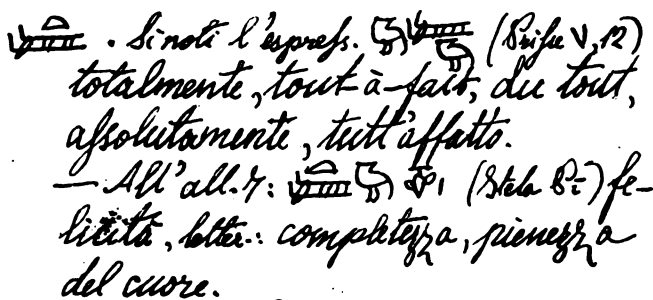 . Si noti l'espress. (V, 12)
totalmente, tout-à-fait, du tout,
assolutamente, tutt'affatto.
— All'all. 7: (Stela Pi) fe-
licità, letter.: completezza, pienezza
del cuore.